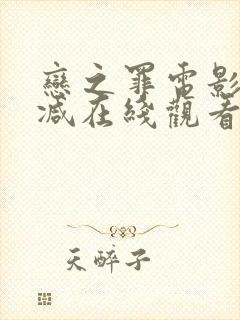 戀之罪電影
減在綫觀看
天醉子